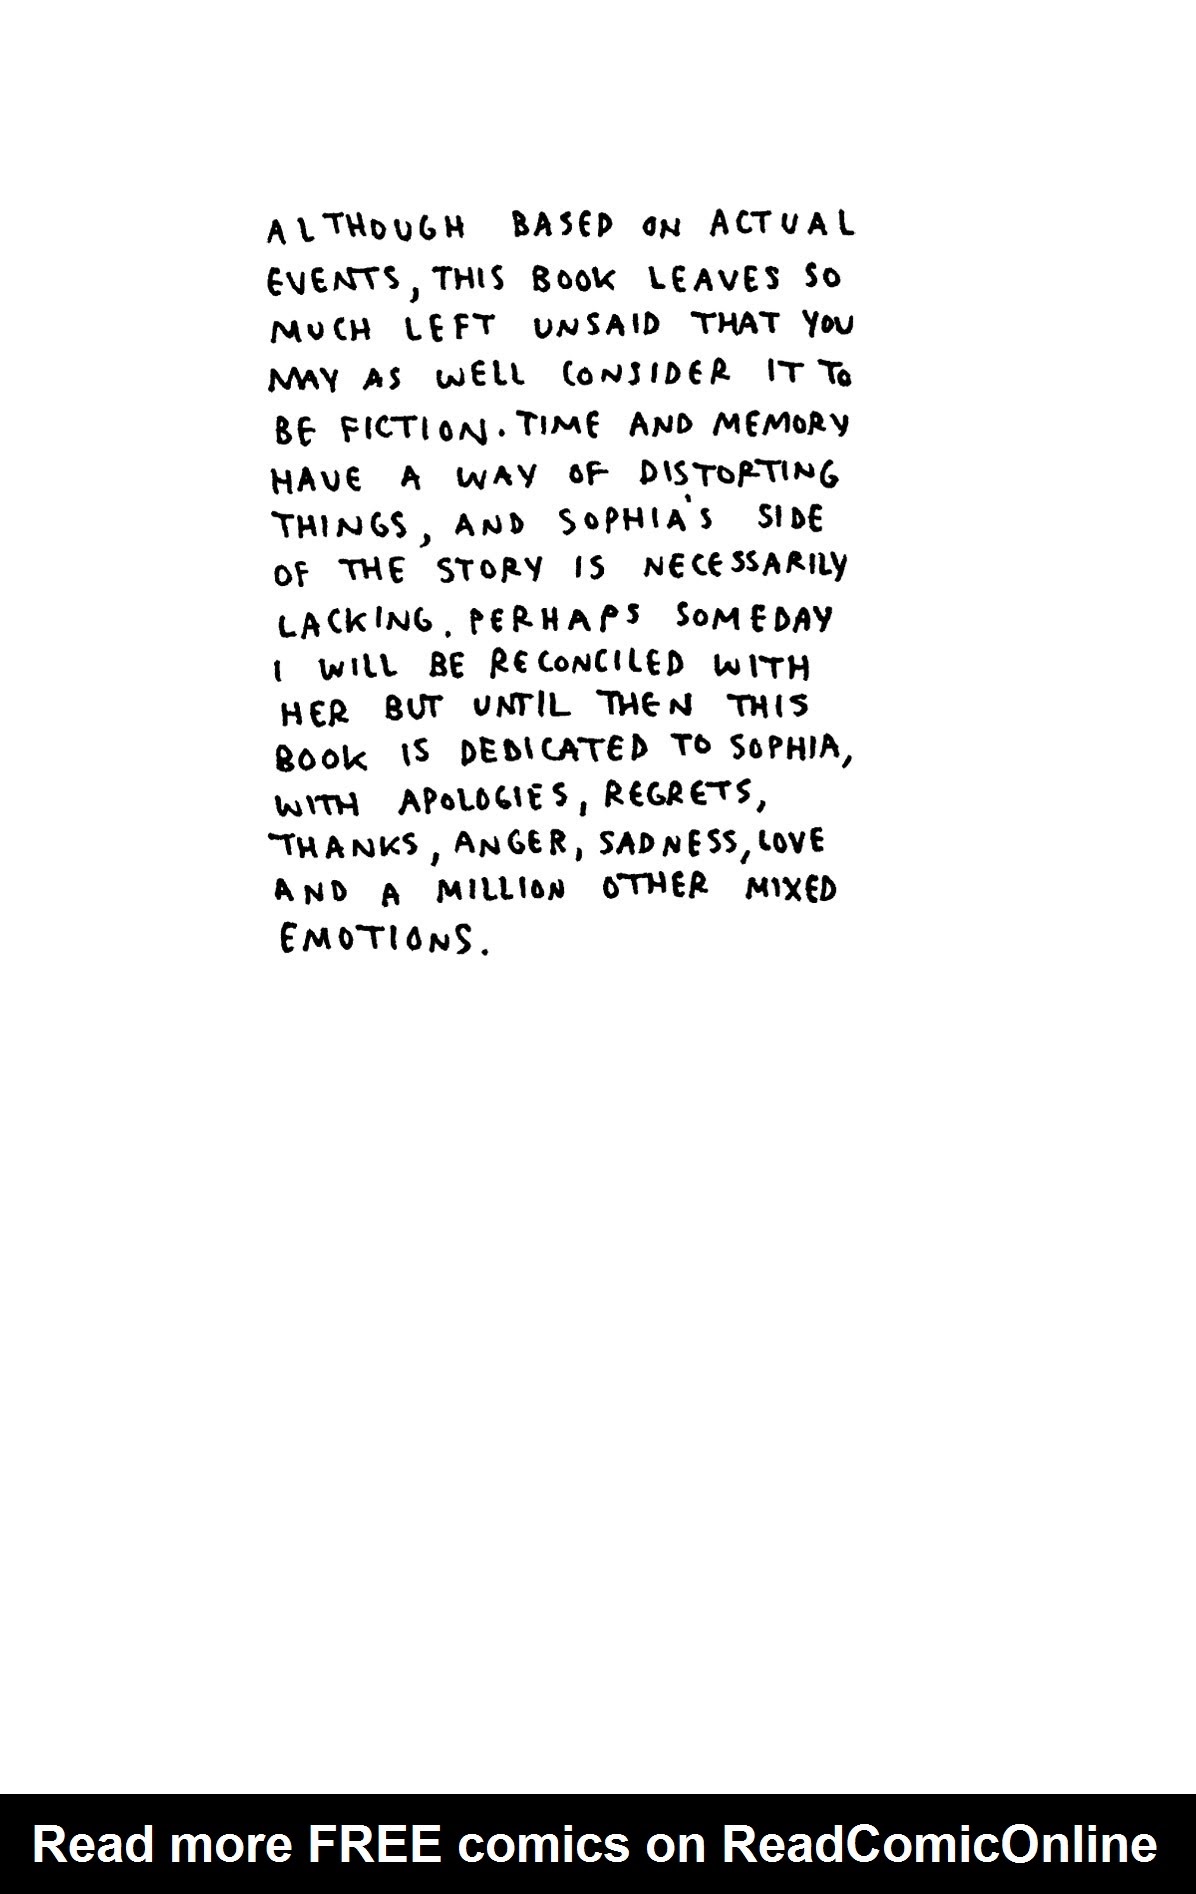 ALTHOUGH BASED ON ACTUAL
EVENTS, THIS BOOK LEAVES SO
MUCH LEFT UNSAID THAT YOU
MAY AS WELL CONSIDER IT TO
BE FICTION. TIME AND MEMORY
HAVE A WAY OF DISTORTING
THINGS, AND SOPHIA'S SIDE
OF THE STORY IS NECESSARILY
LACKING. PERHAPS SOMEDAY
I WILL BE RECONCILED WITH
HER BUT UNTIL THEN THIS
BOOK IS DEDICATED TO SOPHIA,
WITH APOLOGIES, REGRETS,
THANKS, ANGER, SADNESS, LOVE
AND A MILLION OTHER MIXED
EMOTIONS.
Read more FREE comics on ReadComicOnline